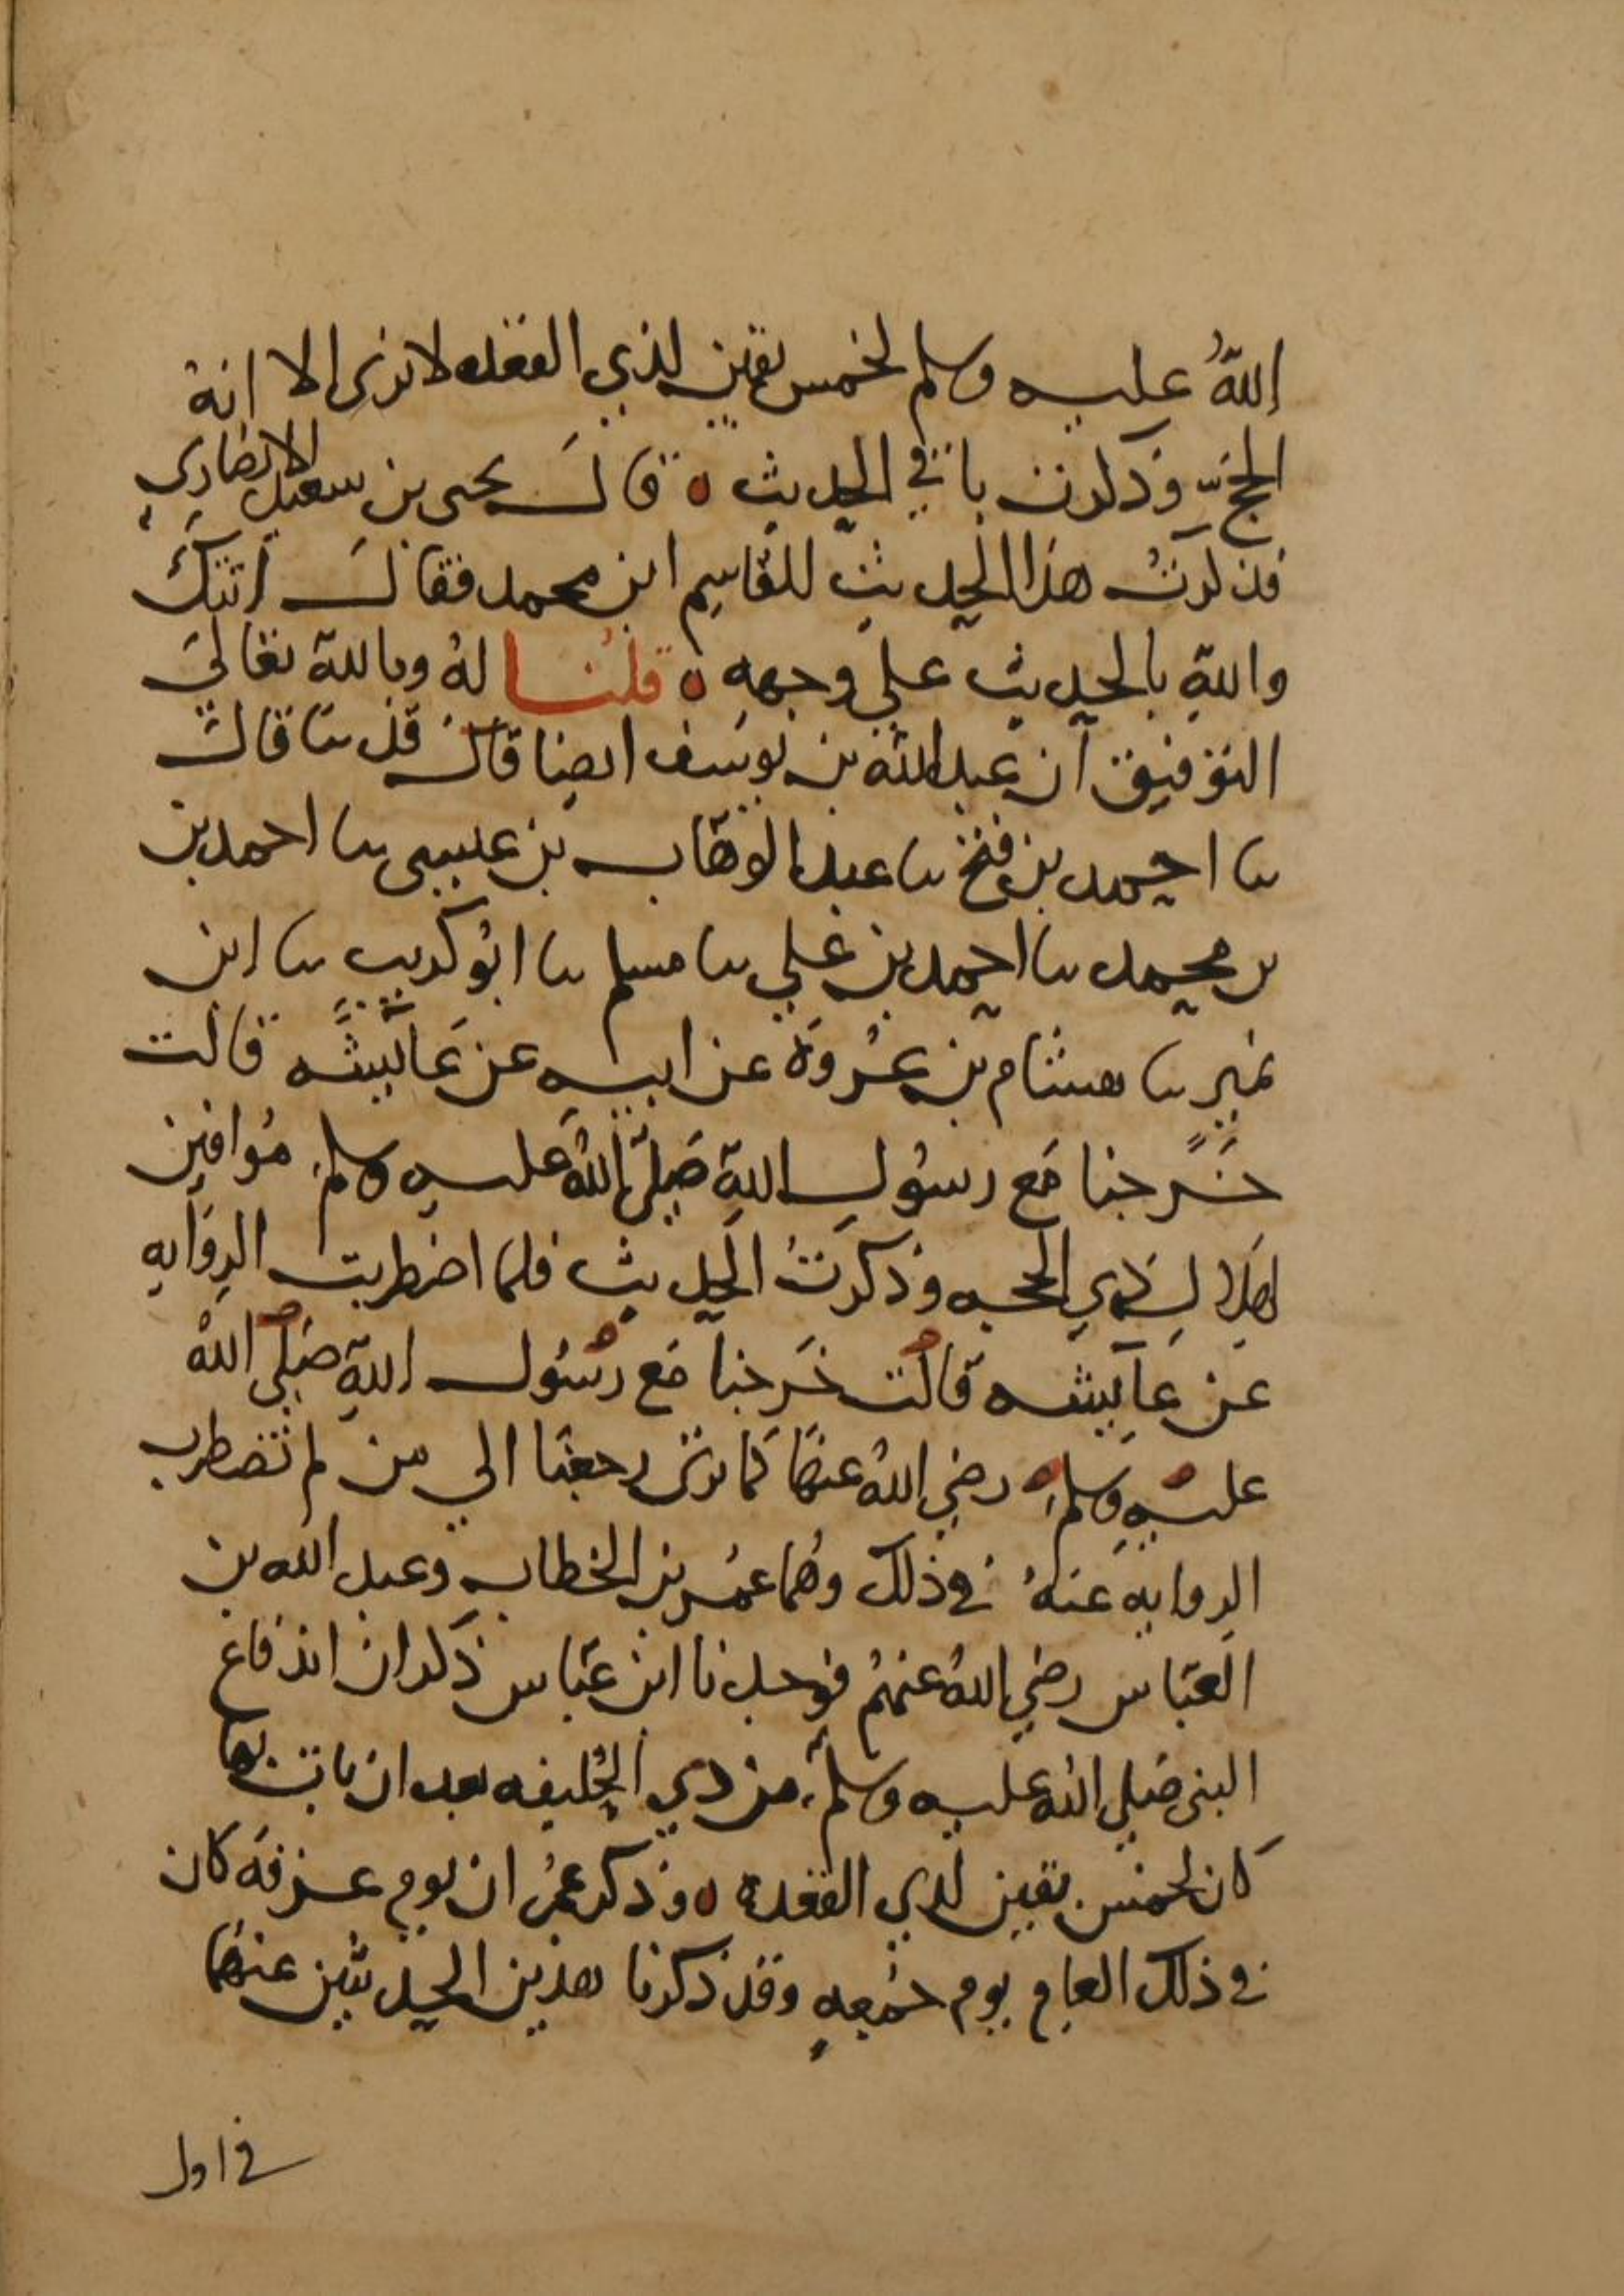 اللهُ عليه وسلم لخمس بقين لذي القعده لا نرى الا انه
الحج وذكرت باقي الحديث ٥ قال يحيى بن سعيد الانصاري
فذكرتُ هذا الحديث للقاسم ابن محمد فقال اتتك
والله بالحديث علي وجهه ٥ قلنا له وبالله تعالى
التوفيق ان عبد الله بن يوسف ايضا قال قد ثنا قال
ثنا احمد بن فتح ثنا عبد الوهاب بن عيسى ثنا احمد بن
بن محمد ثنا احمد بن علي ثنا مسلم ثنا ابو كريب ثنا ابن
نمير ثنا هشام بن عُروة عن ابيه عن عايشه قالت
خرجنا مع رسول الله صلى الله عليه وسلم مُوافين
لهلال ذي الحجه وذكرت الحديث فلما اضطربت الروايه
عن عايشه قالت خرجنا مع رسول الله صلي الله
عليه وسلم رضي الله عنها كما نرى رجعنا الي من لم تضطرب
الروايه عنهُ في ذلك وهُما عُمر بن الخطاب وعبد الله بن
العباس رضي الله عنهُم فوجدنا ابن عباس ذكر ان اندفاع
النبى صلي الله عليه وسلم من ذي الحُليفه بعد ان بات بها
كان لخمس بقين لذي القعده ٥ وذكر عُمر ان يوم عرفه كان
في ذلك العام يوم جُمعه وقد ذكرنا هذين الحديثين عنهُما
في اول